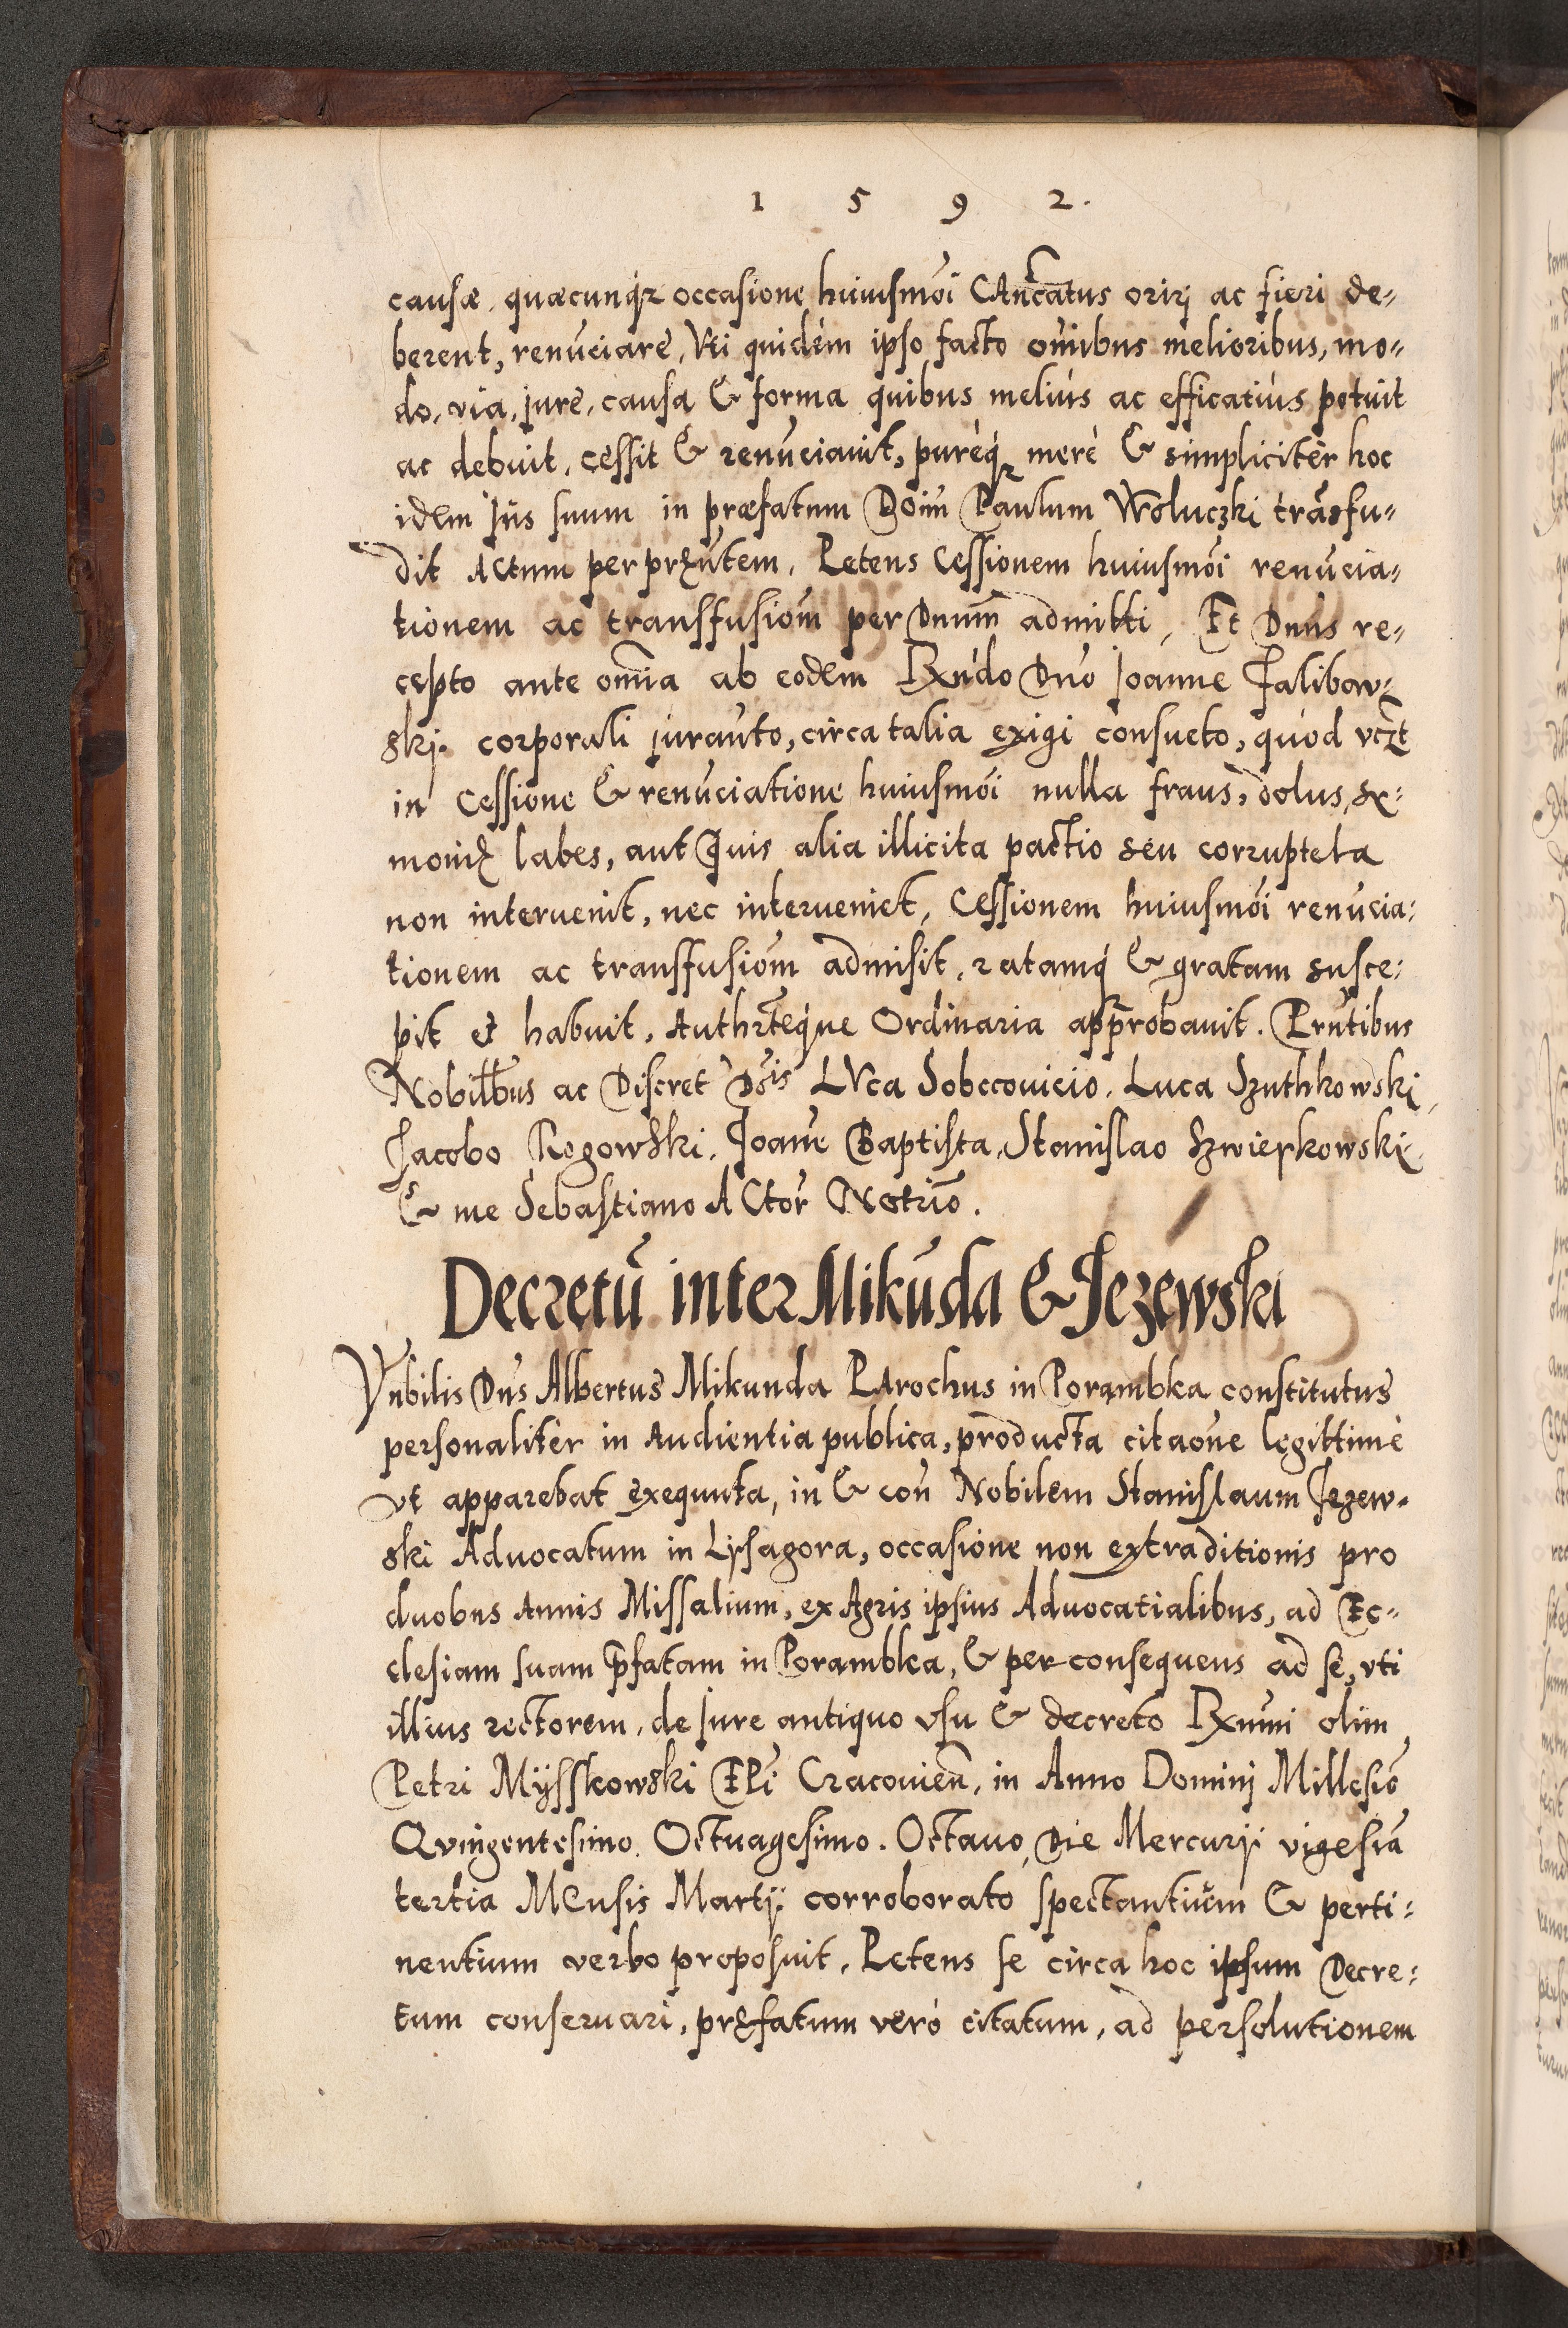 1 5 9 2.
causæ, quæcunq́ꝫ occasione huiusmōi CAnc̄atus orirj ac fieri de-
berent, renūciare, Vti quidèm ipso facto om̄ibus melioribus, mo-
do, via, jure, causa & forma quibus meliùs ac efficatiùs potuit
ac debuit, cessit & renūciauit, purèq́ꝫ merè & simplicitèr hoc
idem Jus suum in præfatum Doim̄ Paulum Woluczki trāsfu-
dit Actum per prȩn̄tem, Petens Cessionem huiusmōi renūcia-
tionem ac transfusiom̄ per Dnum̄ admitti, Et Dnūs re-
cepto ante om̄ia ab eodem Rxn̄do Dnō Joanne Falibow-
skj. corporali juran̄to, circa talia exigi consueto, quòd vcꝫt
in Cessione & renūciatione huiusmōi nulla fraus, dolus, sy-
moniȩ labes, aut Quis alia illicita pactio seu corruptela
non interuenit, nec interueniet, Cessionem huiusmōi renūcia-
tionem ac transfusiom̄ admisit, ratamq́ & gratam susce-
pit et habuit, Authrt̄eq́ue Ordinaria app̄robauit. Prn̄tibus
Nobilībus ac Discret Dōis LVca Sobccouicio, Luca Szuthkowski,
Jacobo Rogowski, Joan̄e Baptista, Stanislao Szwierkowski,
& me Sebastiano ACtor̄ Notriō.
Decretū inter Mikūda & Jezewski
Vnbilis Dn̄s Albertus Mikunda PArochus in Porambka constitutus
personalitèr in Audientia publica, prōducta citaōne legittimè
vt apparebat exequuta, in & con̄ Nobilem Stanislaum Jezew-
ski Aduocatum in Lysagora, occasione non extraditionis pro
duobus Annis Missalium, ex Agris ipsius Aduocatialibus, ad Ec-
clesiam suam p̄fatam in Porambka, & per consequens ad se, vti
illius rectorem, de jure antiquo vsu & decreto Rxn̄mi olim
Petri Mysskowski EPī Cracouien̄, in Anno Dominj Millesiō
Qvingentesimo Octuagesimo. Octauo, Die Mercurij vigesiā
tertia MEnsis Martij. corroborato spectantiūm & perti-
nentium verbo proposuit, Petens se circa hoc ipsum Decre-
tum conseruari, prȩfatum verò citatum, ad persolutionem